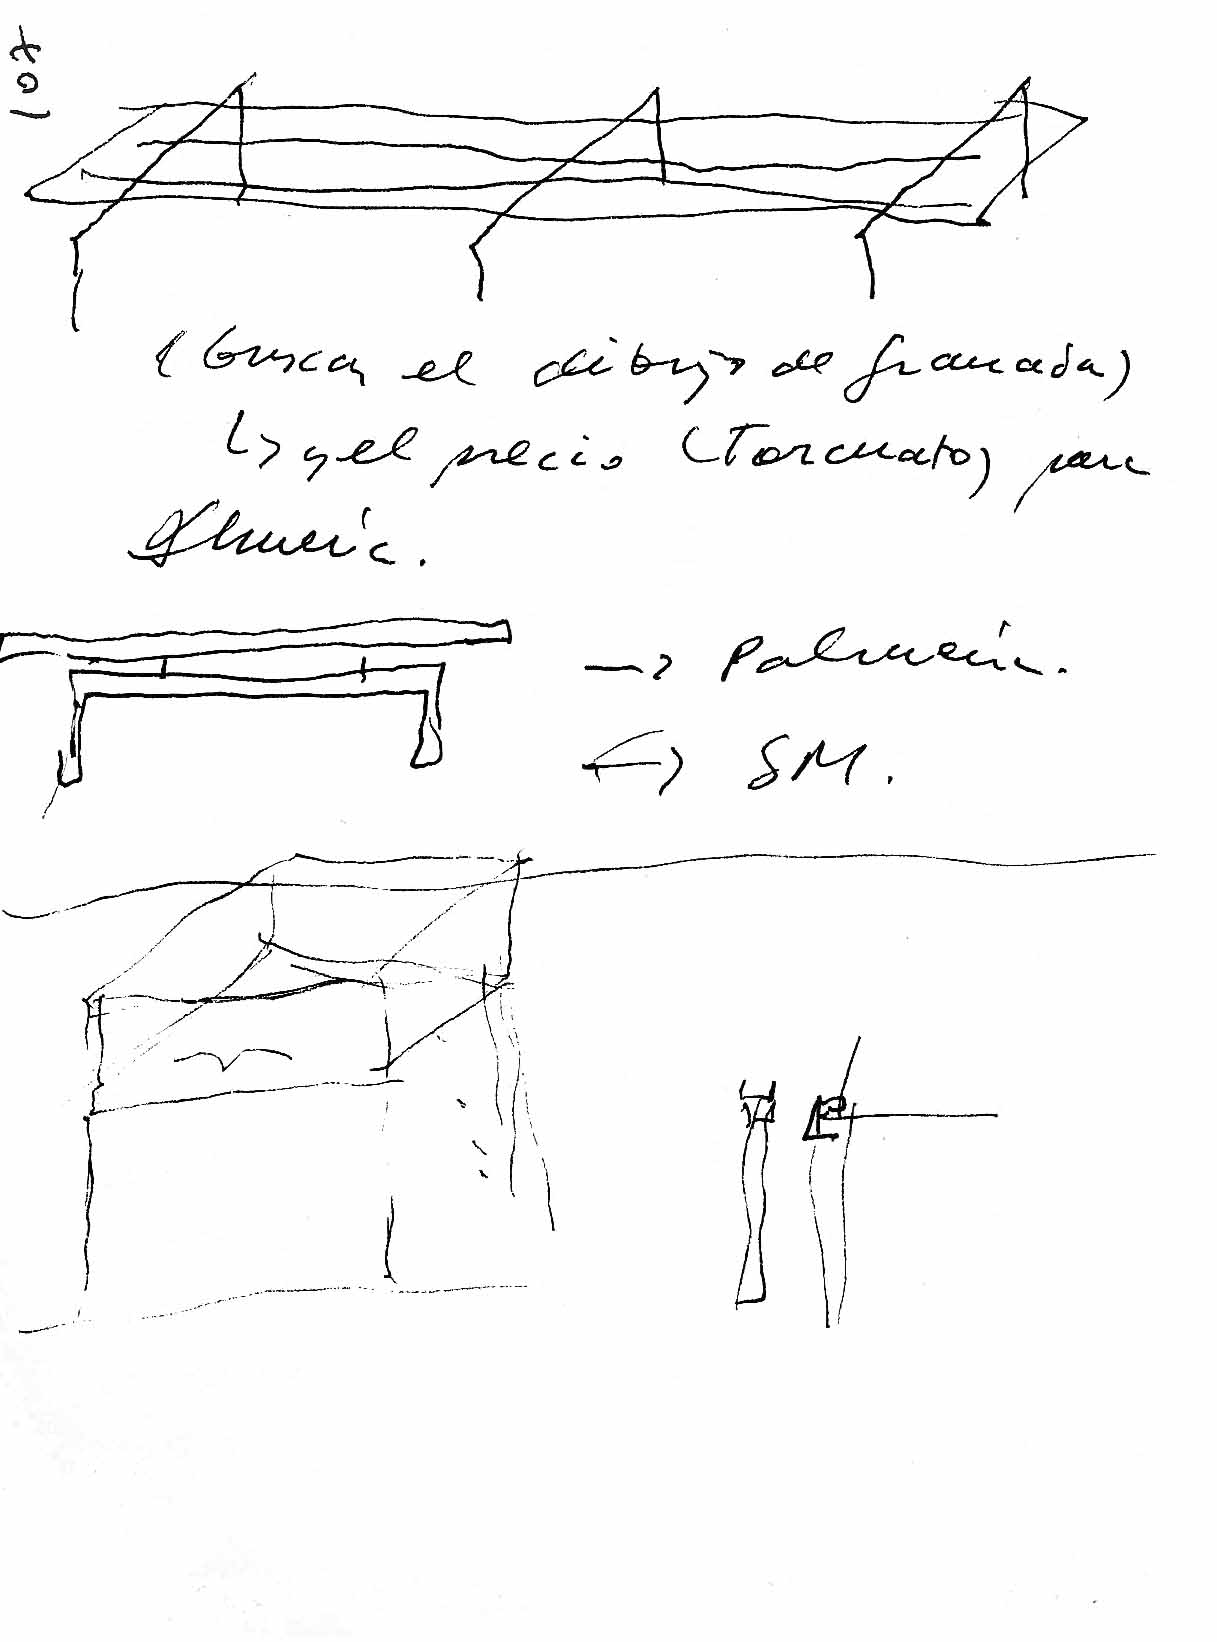 (buscar el dibujo de Granada)
↳ y el precio (Torcuato) para
Almería.
→ Palmería.
↔ SM.